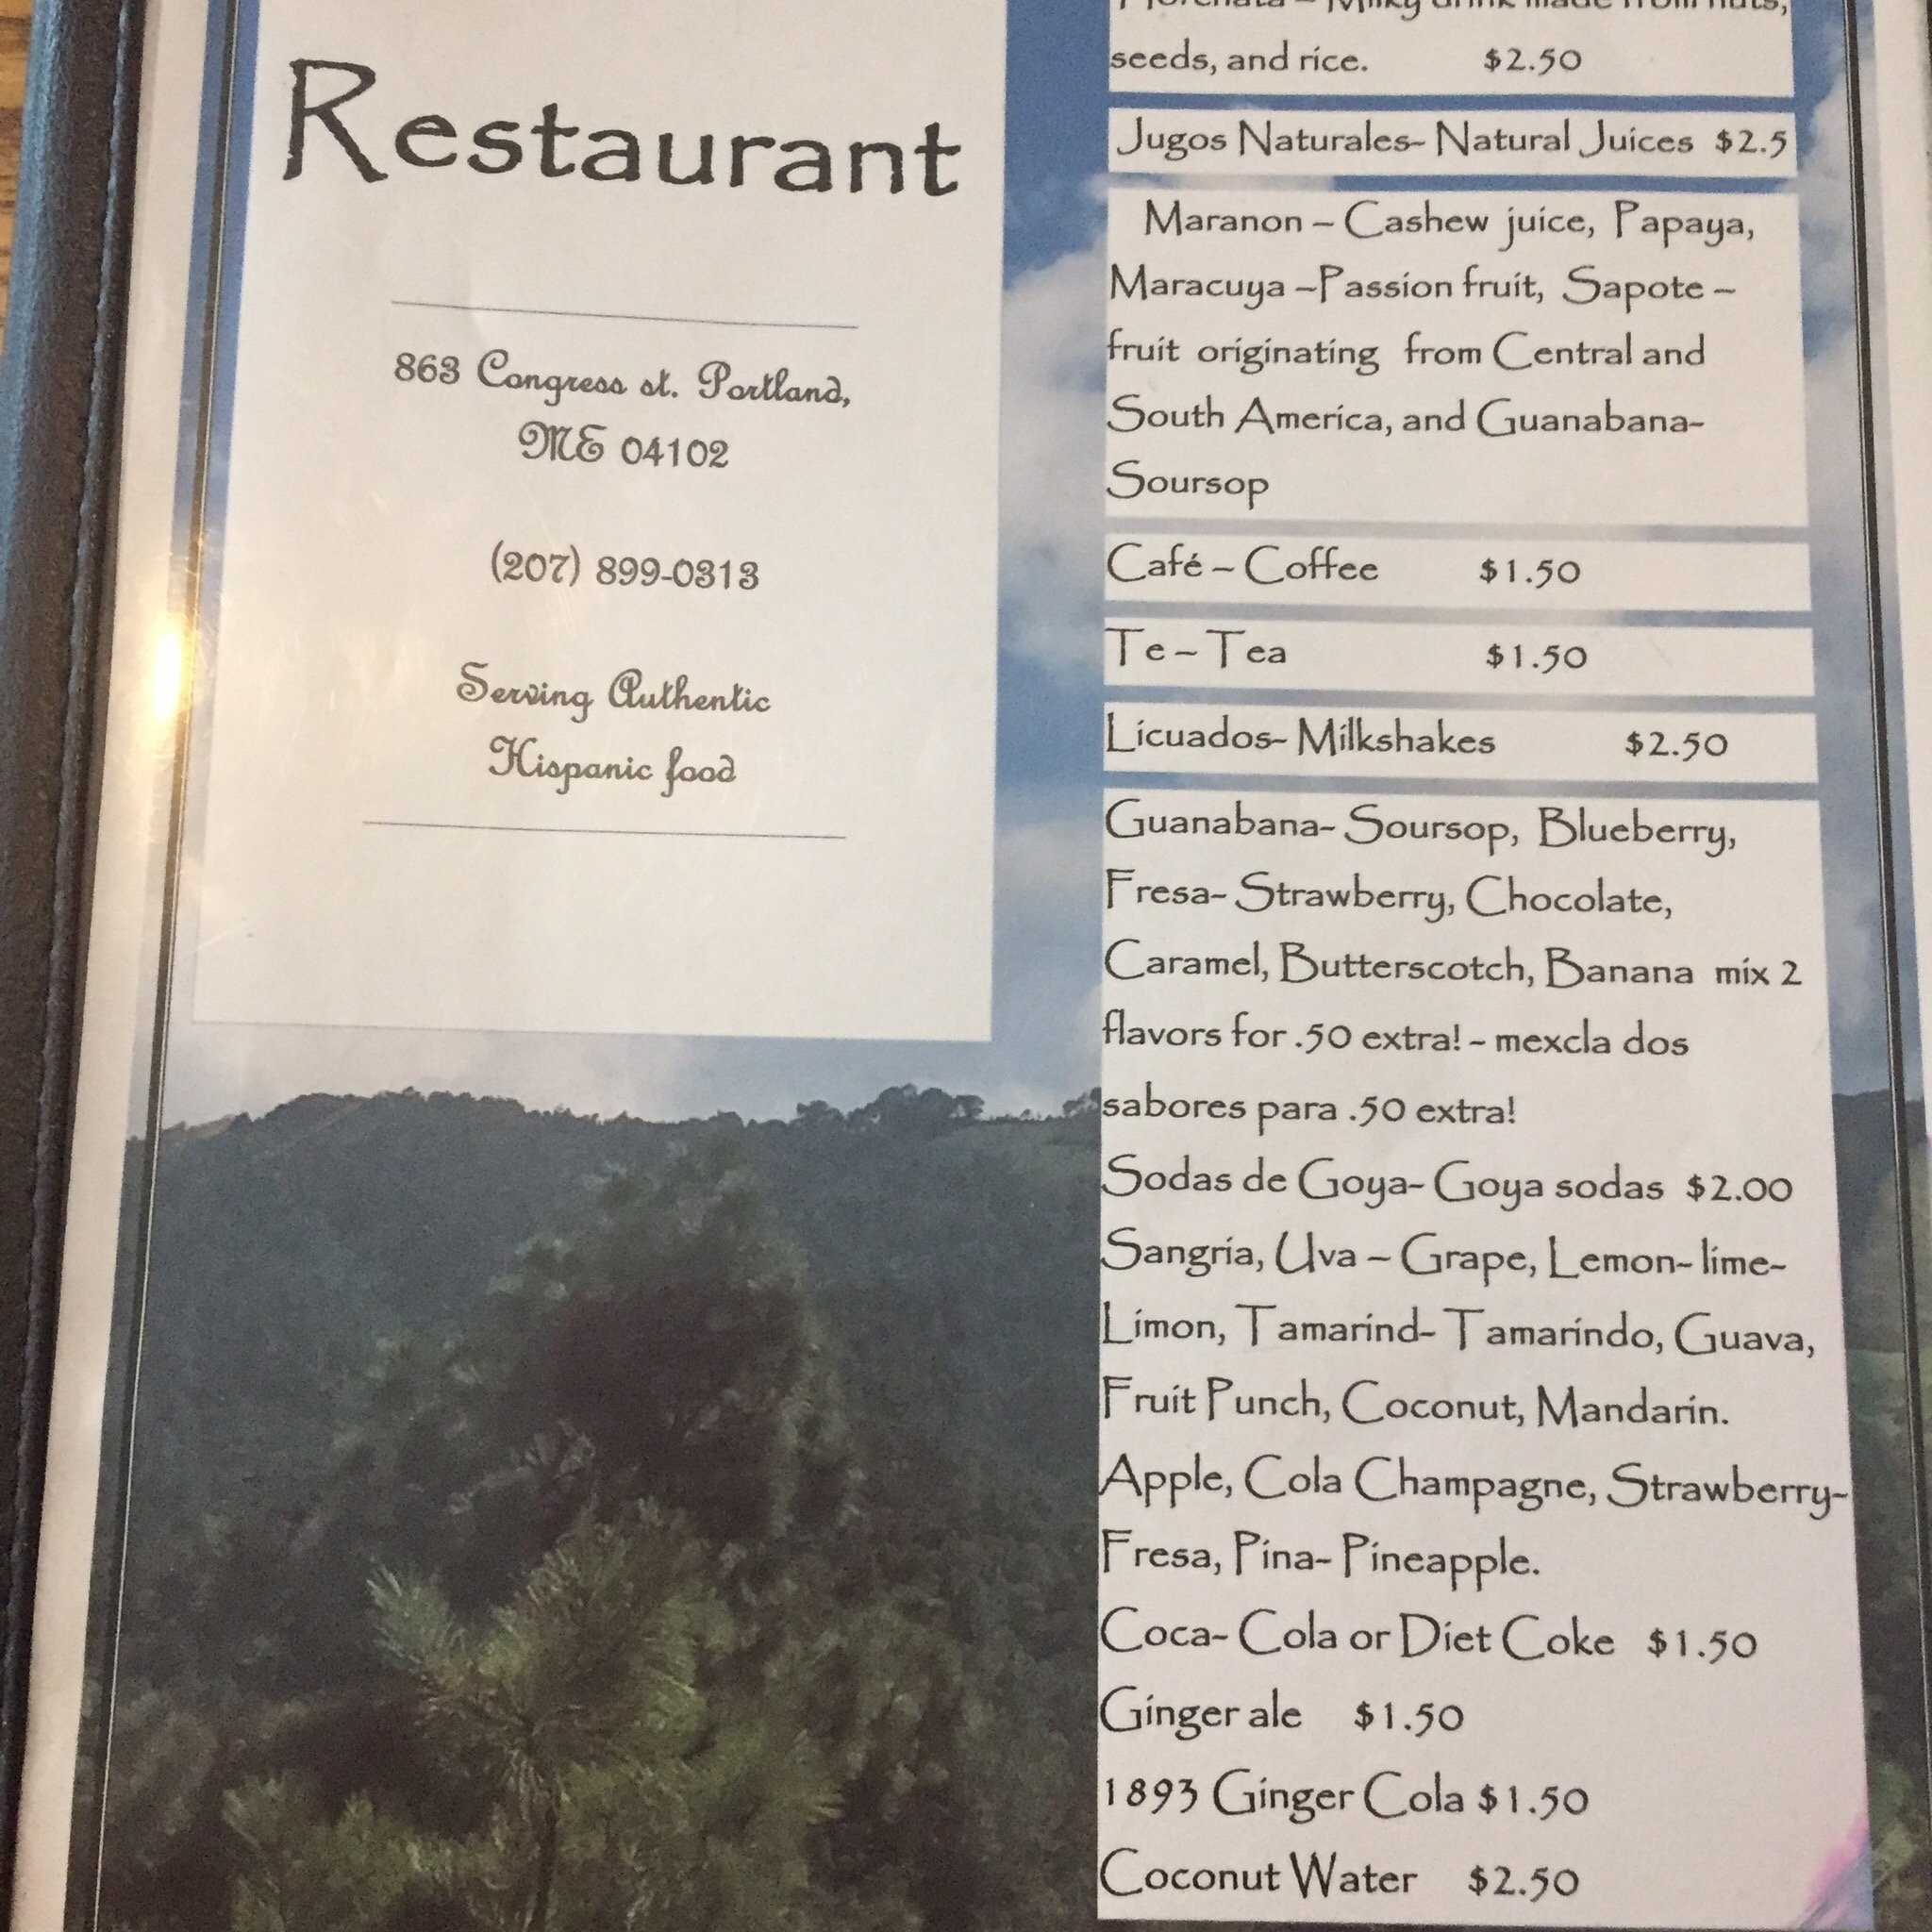 Restaurant
863 Congress st. Portland,
ME 04102
(207) 899-0313
Serving Authentic
Hispanic food
Horchata – Milky drink made from nuts,
seeds, and rice. $2.50
Jugos Naturales- Natural Juices $2.5
Maranon – Cashew juice, Papaya,
Maracuya –Passion fruit, Sapote –
fruit originating from Central and
South America, and Guanabana-
Soursop
Café – Coffee $1.50
Te – Tea $1.50
Licuados- Milkshakes $2.50
Guanabana- Soursop, Blueberry,
Fresa- Strawberry, Chocolate,
Caramel, Butterscotch, Banana mix 2
flavors for .50 extra! - mexcla dos
sabores para .50 extra!
Sodas de Goya- Goya sodas $2.00
Sangria, Uva – Grape, Lemon- lime-
Limon, Tamarind- Tamarindo, Guava,
Fruit Punch, Coconut, Mandarin.
Apple, Cola Champagne, Strawberry-
Fresa, Pina- Pineapple.
Coca- Cola or Diet Coke $1.50
Ginger ale $1.50
1893 Ginger Cola $1.50
Coconut Water $2.50